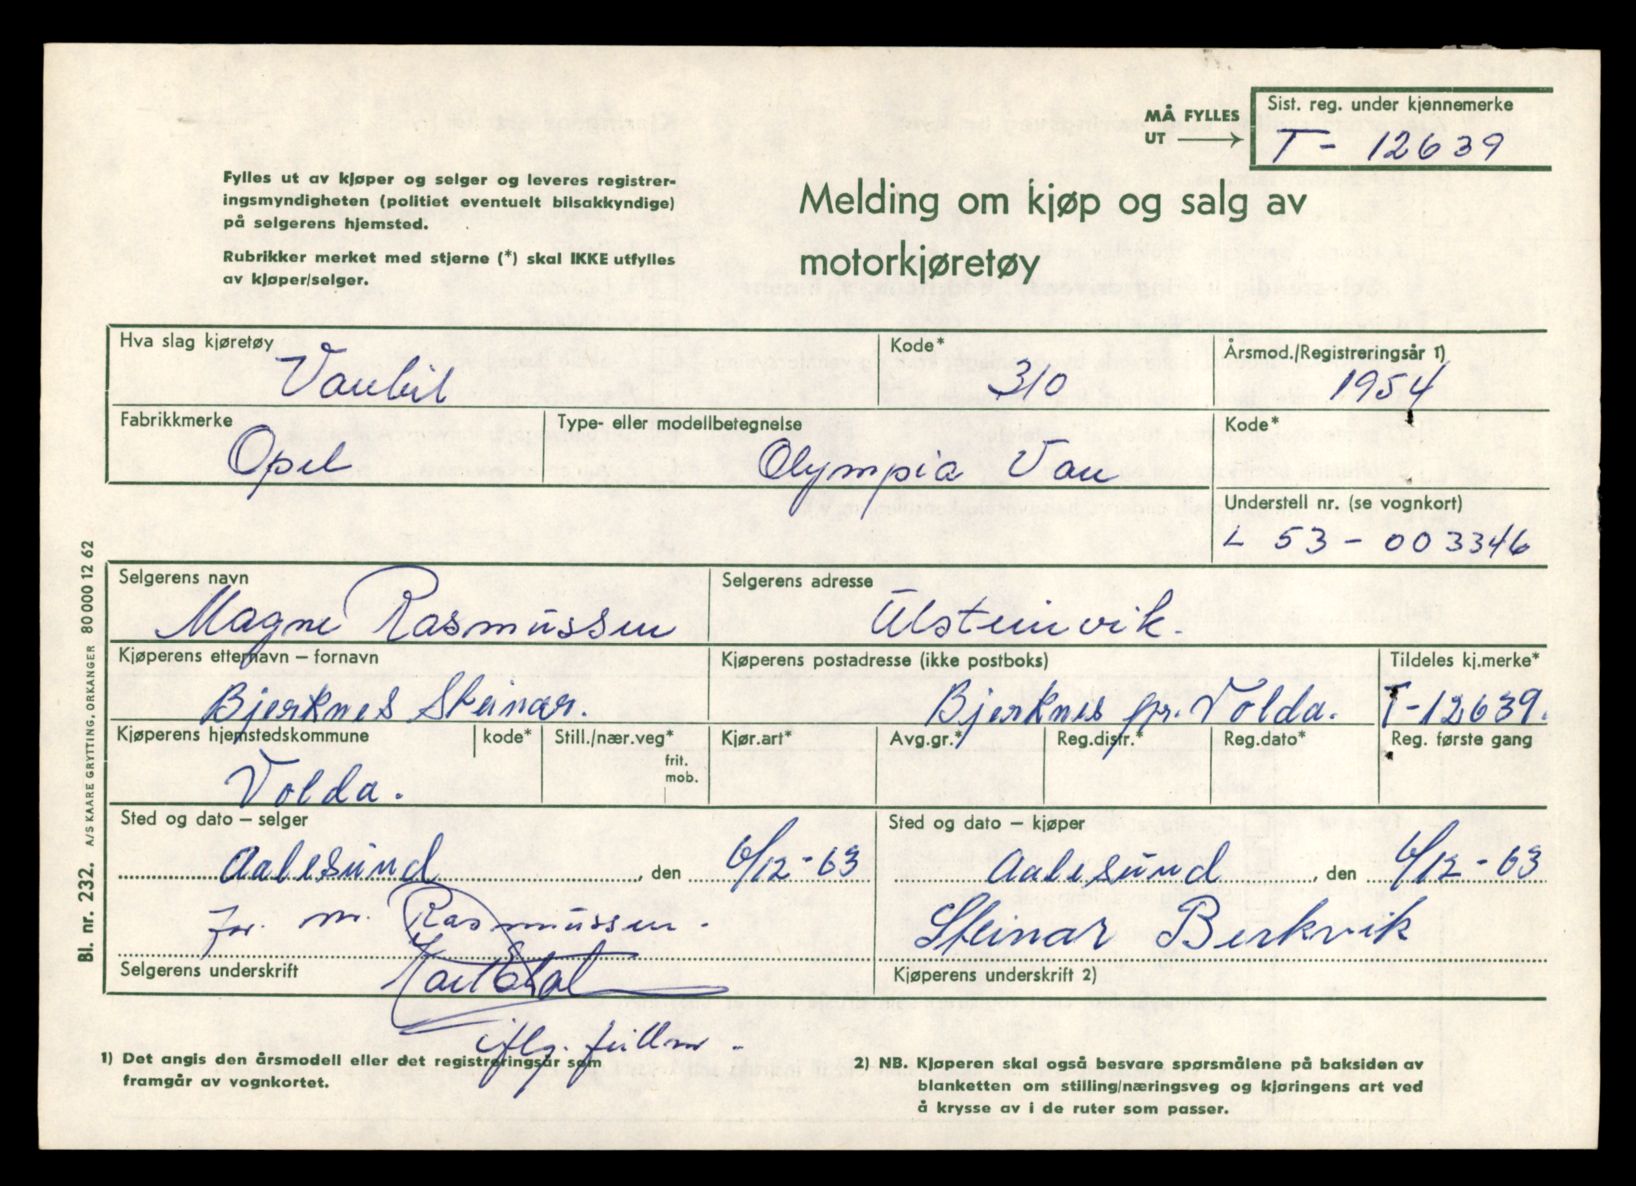 MÅ FYLLES UT
Sist. reg. under kjennemerke
T - 12639
Fylles ut av kjøper og selger og leveres registrer-
ingsmyndigheten (politiet eventuelt bilsakkyndige)
på selgerens hjemsted.
Rubrikker merket med stjerne (*) skal IKKE utfylles
av kjøper/selger.
Melding om kjøp og salg av
motorkjøretøy
Hva slag kjøretøy
Varebil
Kode*
310
Årsmod./Registreringsår 1)
1954
Fabrikkmerke
Opel
Type- eller modellbetegnelse
Olympia Van
Kode*
Understell nr. (se vognkort)
L 53 - 003346
Selgerens navn
Magne Rasmussen
Selgerens adresse
Ulsteinvik.
Kjøperens etternavn – fornavn
Bjerknes Steinar.
Kjøperens postadresse (ikke postboks)
Bjerknes pr. Volda.
Tildeles kj.merke*
T-12639.
Kjøperens hjemstedskommune
Volda.
kode*
Still./nær.veg*
frit.
mob.
Kjør.art*
Avg.gr.*
Reg.distr.*
Reg.dato*
Reg. første gang
Sted og dato – selger
Aalesund, den 6/12-63
for. M. Rasmussen.
Selgerens underskrift
iflg. fullm.
Sted og dato – kjøper
Aalesund, den 6/12-63
Steinar Berkvik
Kjøperens underskrift 2)
1) Det angis den årsmodell eller det registreringsår som
framgår av vognkortet.
2) NB. Kjøperen skal også besvare spørsmålene på baksiden av
blanketten om stilling/næringsveg og kjøringens art ved
å krysse av i de ruter som passer.
Bl. nr. 232. A/S KAARE GRYTTING, ORKANGER 80 000 12 62